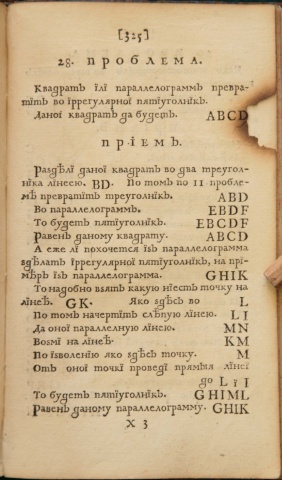 [325]
28. ПРОБЛЕМА.
Квадратъ їлї параллелограммъ превра-
тїть во їррегулярной пятїуголнїкъ.
Даної квадратъ да будетъ. ABCD
ПРІЕМЪ.
Раздѣлї даної квадратъ во два треугол-
нїка лїнеею. BD. По томъ по 11 пробле-
мѣ превратїть треуголнїкъ. ABD
Во параллелограммъ. EBDF
То будетъ пятїуголнїкъ. EBCDF
Равенъ даному квадрату. ABCD
А еже лї похочется їзъ параллелограмма
здѣлать їррегулярної пятїуголнїкъ, на прї-
мѣръ їзъ параллелограмма. GHIK
То надобно взять какую нїесть точку на
лїнеѣ. GK. Яко здѣсь во L
По томъ начертїть слѣпую лїнею. LI
Да оної параллелную лїнею. MN
Возмї на лїнеѣ. KM
По їзволенїю яко здѣсь точку. M
Отъ оної точкї проведї прямыя лїнеї
до L ї I
То будетъ пятїуголнїкъ. GHIML
Равенъ даному параллелограмму. GHIK
X 3